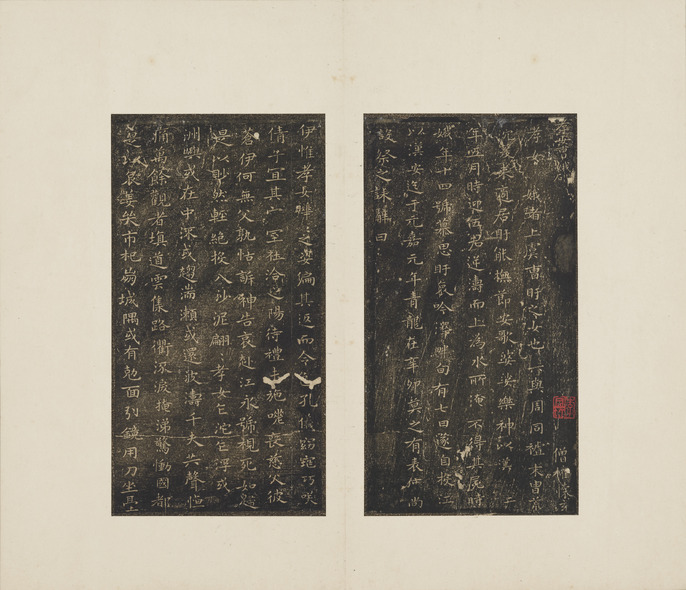 孝女曹娥碑
孝女曹娥者上虞曹盱之女也其先與周同祖末胄荒
沉爰來適居盱能撫節安歌婆娑樂神以漢二
年五月時迎伍君逆濤而上為水所淹不得其屍時
娥年十四號慕思盱哀吟澤畔旬有七日遂自投江
以漢安迄于元嘉元年青龍在辛卯莫之有表度尚
設祭之誄辭曰
伊惟孝女曄之姿偏其返而令色孔儀窈窕巧咲
倩兮宜其家室在洽之陽待禮未施嗟喪慈父彼
蒼伊何無父孰怙訴神告哀赴江永號視死如歸
是以眇然輕絕投入沙泥翩孝女乍沉乍浮或
洲嶼或在中流或趨湍瀨或還波濤千夫失聲悼
痛萬餘觀者填道雲集路衢泣淚掩涕驚慟國都
是以哀姜哭市杞崩城隅或有剋面引鏡用刀坐臺